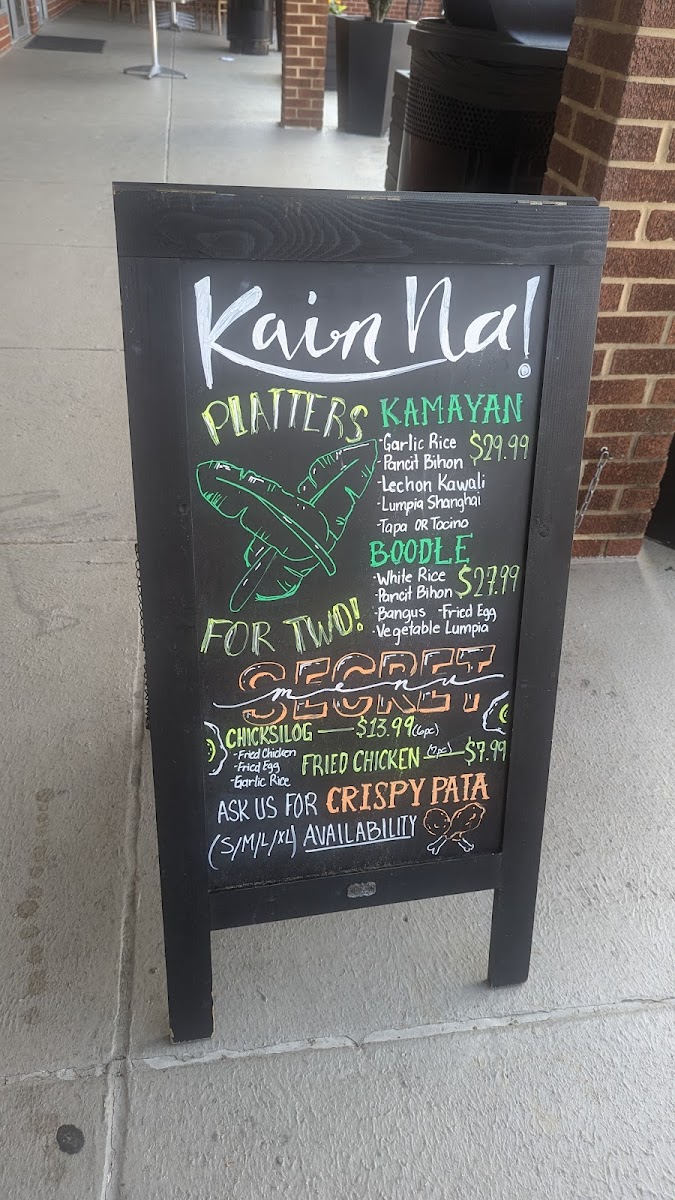 Kain Na!
PLATTERS
FOR TWO!
KAMAYAN
-Garlic Rice $29.99
-Pancit Bihon
-Lechon Kawali
-Lumpia Shanghai
-Tapa OR Tocino
BOODLE
-White Rice $27.99
-Pancit Bihon
-Bangus -Fried Egg
-Vegetable Lumpia
SECRET
menu
CHICKSILOG $13.99
-Fried Chicken
-Fried Egg
-Garlic Rice
FRIED CHICKEN (2pc) $7.99
ASK US FOR CRISPY PATA
(S/M/L/XL) AVAILABILITY